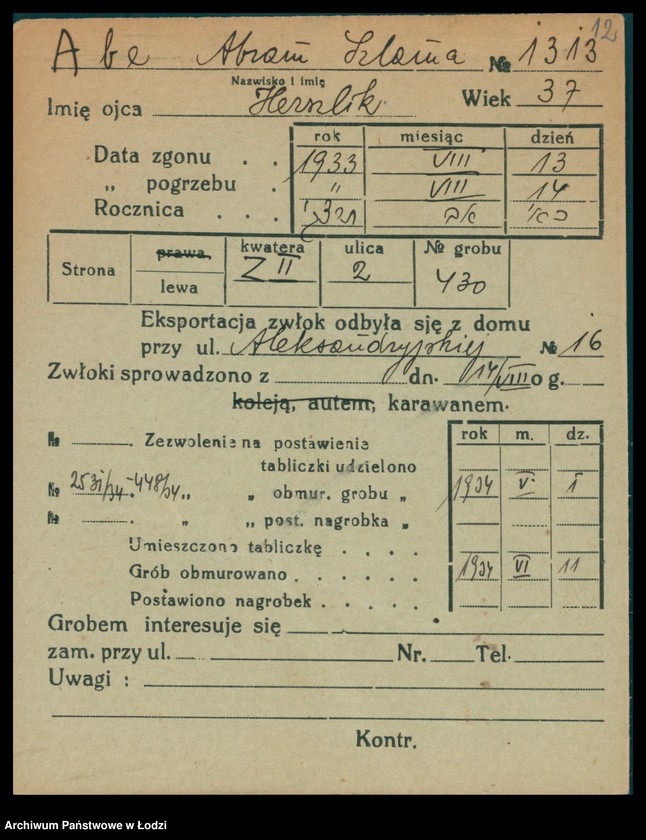 12
Abe Abram Szlama № 1313
Nazwisko i imię
Imię ojca Herszlik Wiek 37
rok miesiąc dzień
Data zgonu . . 1933 VIII 13
„ pogrzebu . „ VIII 14
Rocznica . . . אב כא
Strona prawa, lewa
kwatera Z II
ulica 2
№ grobu 430
Eksportacja zwłok odbyła się z domu
przy ul. Aleksandryjskiej № 16
Zwłoki sprowadzono z dn. 14/VIII o g.
koleją, autem, karawanem.
rok m. dz.
№ . Zezwolenie na postawienie
tabliczki udzielono
№ 2531/34 - 448/34 „ „ obmur. grobu „ 1934 V 1
№ . „ „ post. nagrobka „
Umieszczono tabliczkę . . . .
Grób obmurowano . . . . . 1934 VI 11
Postawiono nagrobek . . . .
Grobem interesuje się
zam. przy ul. Nr. Tel.
Uwagi :
Kontr.
Archiwum Państwowe w Łodzi